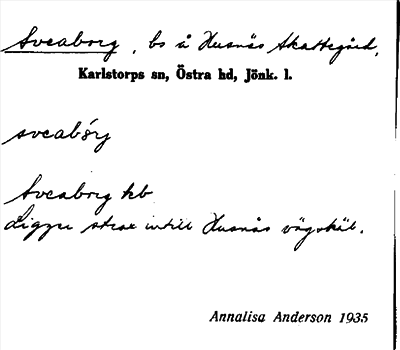 Sveaborg, bs å Husnäs Skattegård,
Karlstorps sn, Östra hd, Jönk. l.
sveabórj
Sveaborg kb
Ligger strax intill Husnäs vägskäl.
Annalisa Anderson 1935